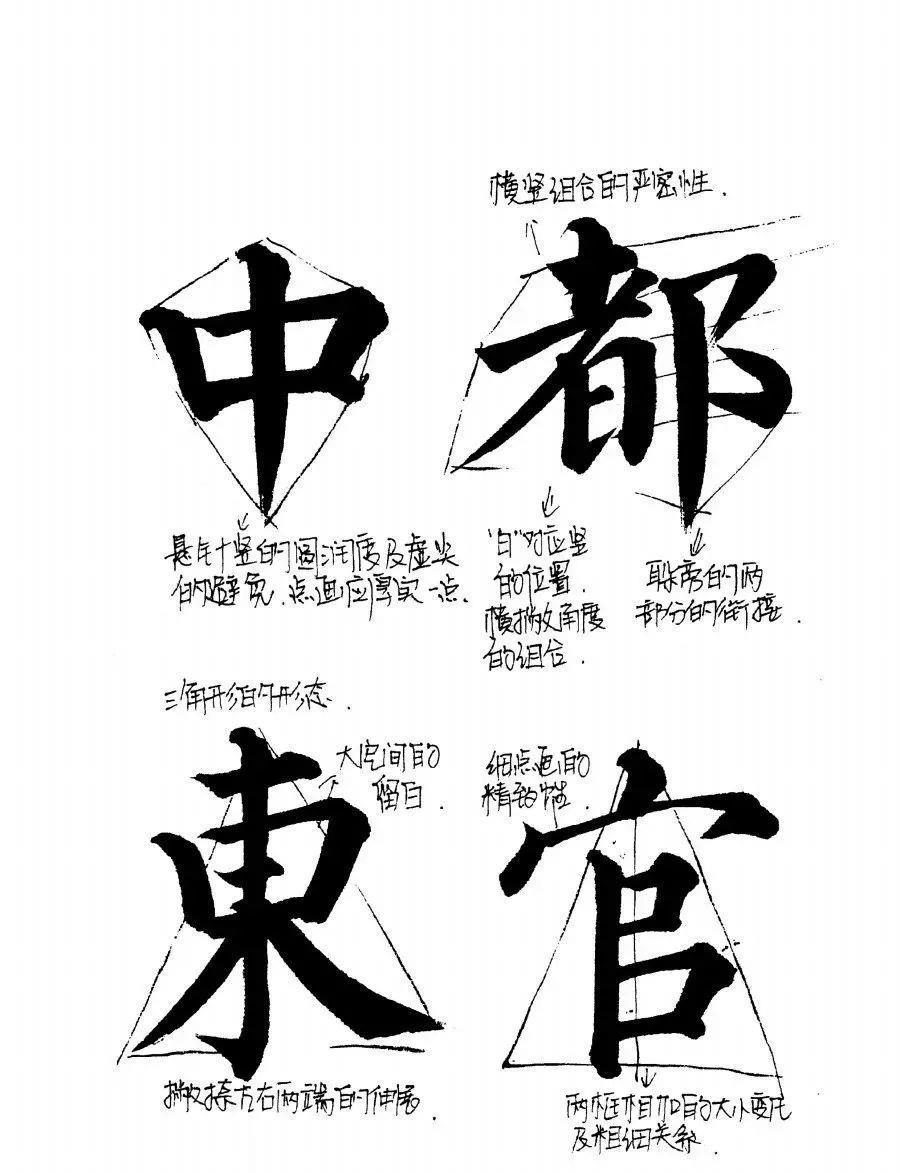 横竖组合的严密性.
中
都
悬针竖的圆润度及虚尖
的避免.点画应厚实一点.
"白"对应竖
的位置.
横撇角度
的组合.
耳旁的两
部分的衔接.
三角形的形态.
東
大空间的
留白.
细点画的
精致性.
官
撇捺左右两端的伸展.
两框相加的大小变化
及粗细关系.